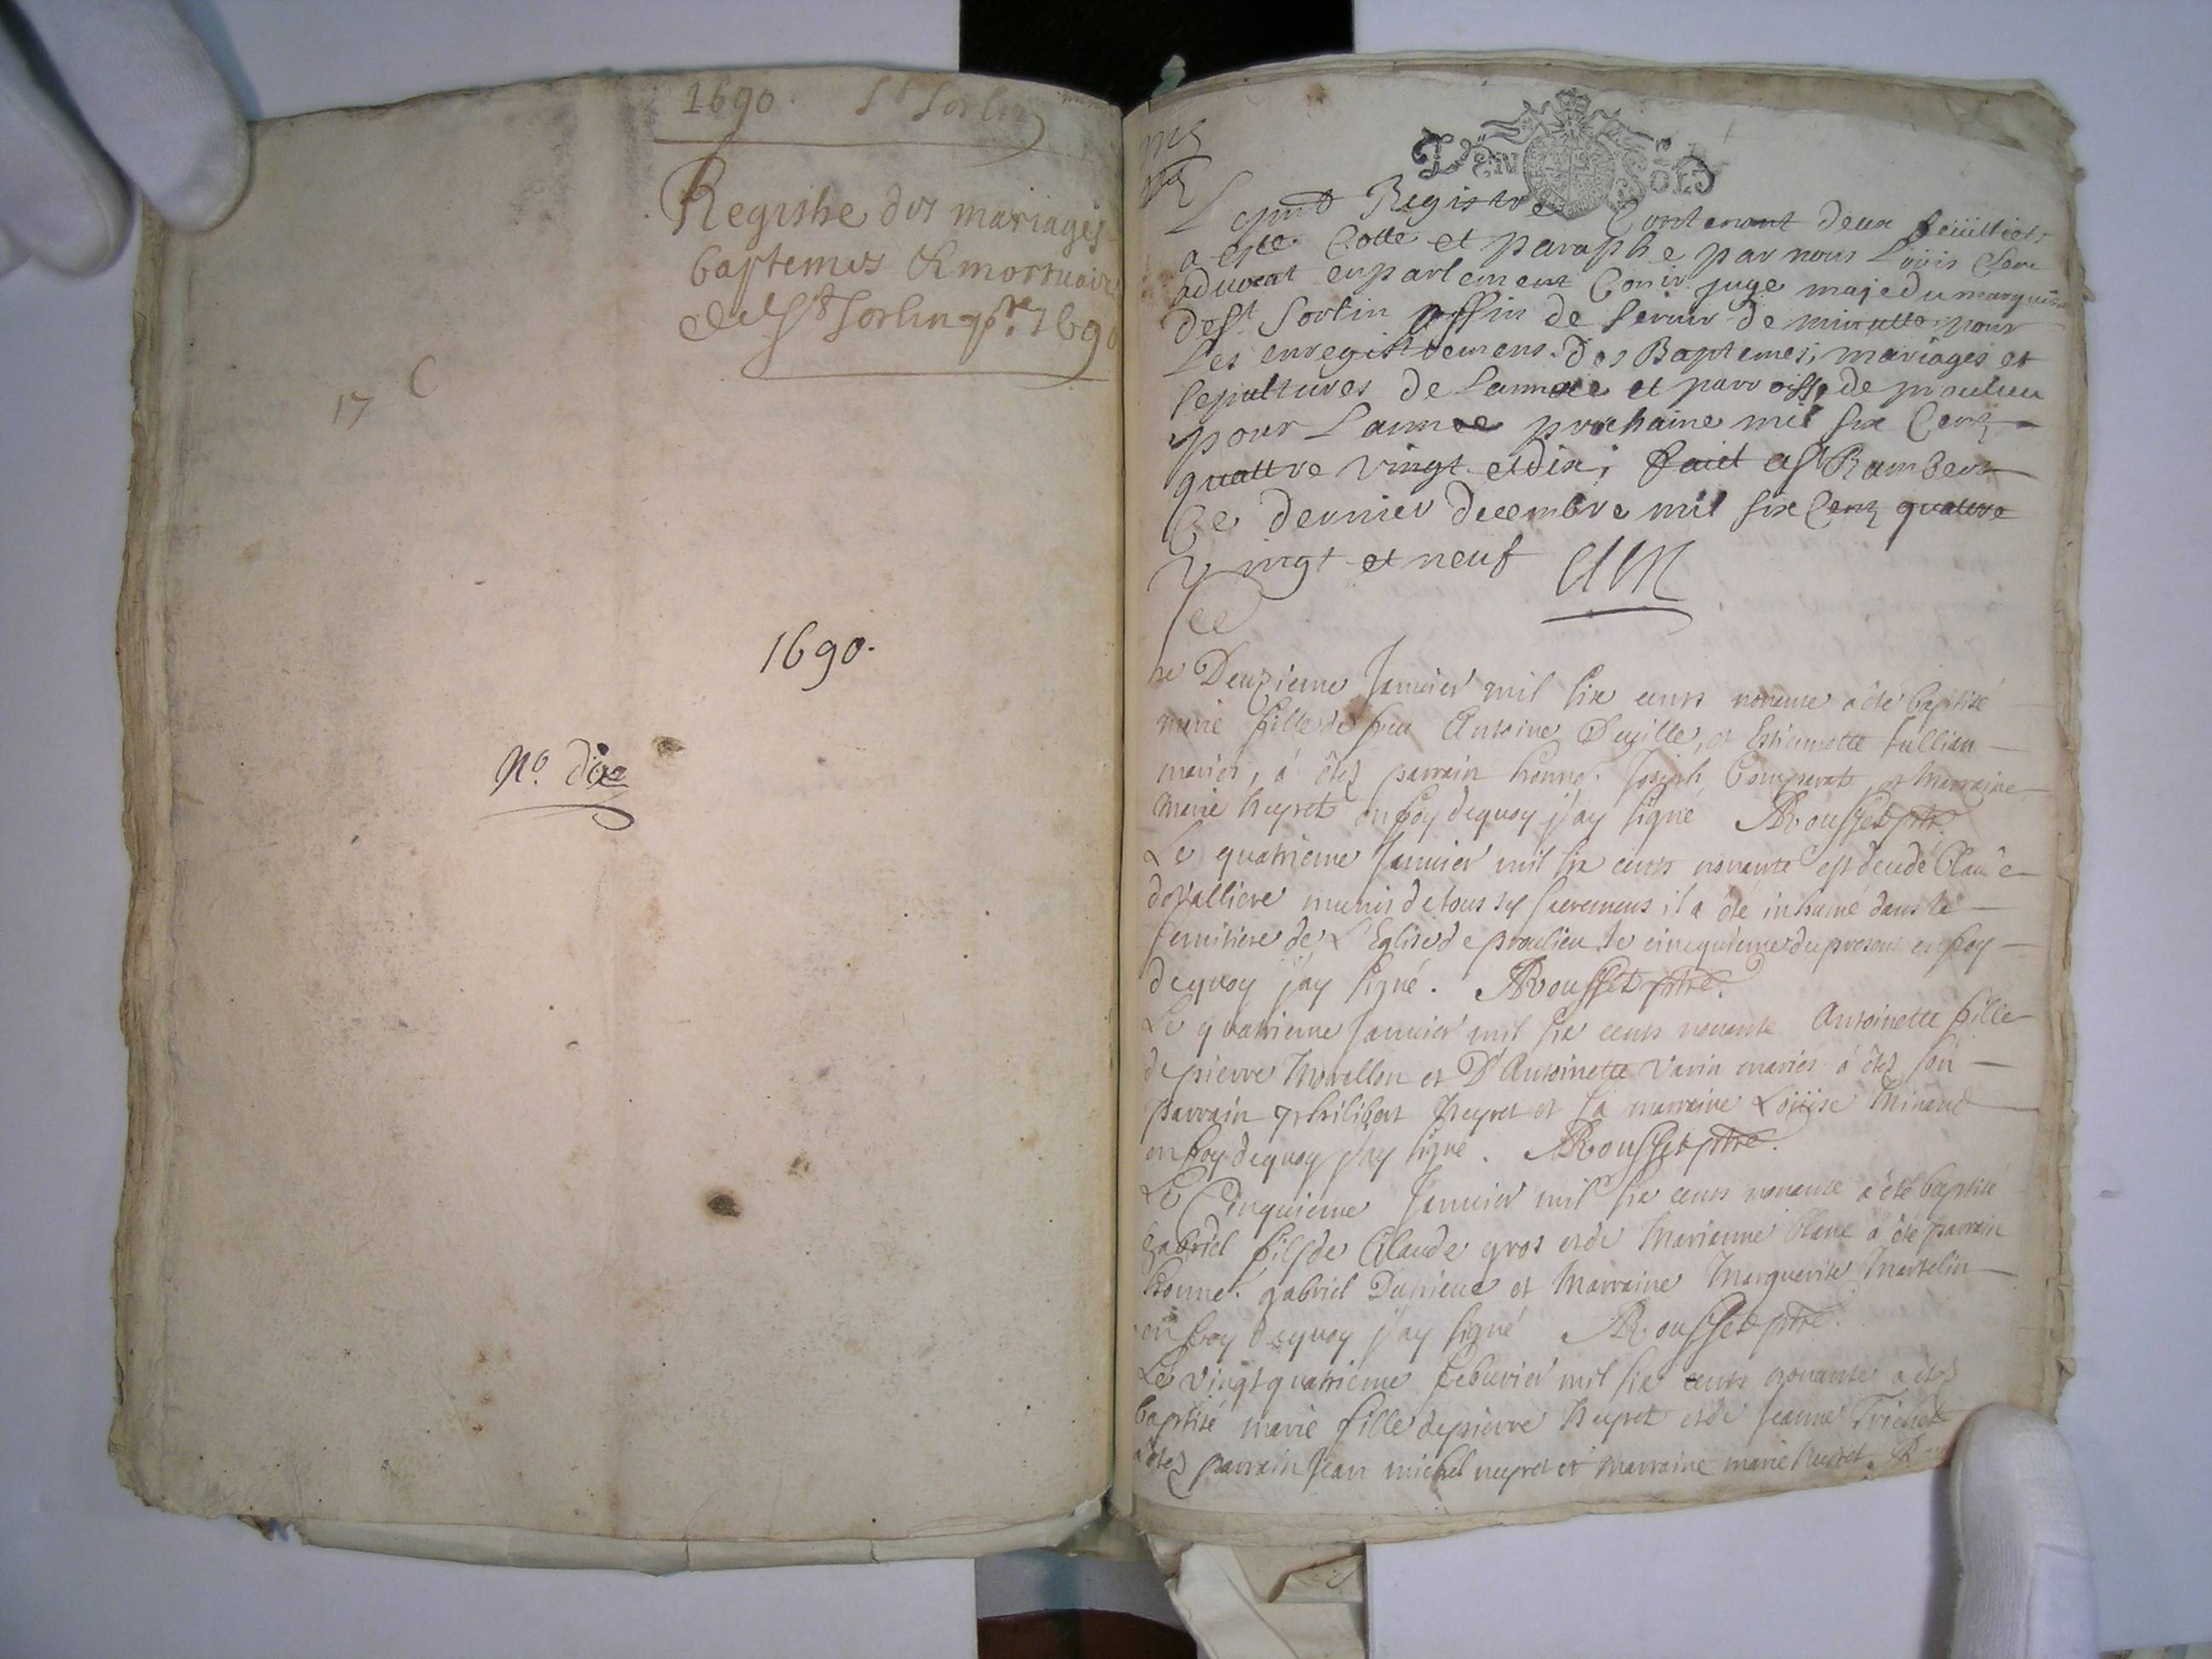 1690. St Sorlin
Registre des mariages
baptemes & mortuaires
de St Sorlin 1690
17 C
1690.
No. dix
DEN SOLS
Le pnt Registre Contenant deux feüillets
a este Cotte et paraphe par nous Loüis
advocat en parlement Conir juge maje du marquisat
de St Sorlin affin de servir de minutte pour
Les enregistremens des Baptemes, mariages et
sepultures de Lannexe et parroisse de proulieu
pour Lannee prochaine mil six Centz
quattre vingt et dix, fait a St Rambert
Ce dernier decembre mil six Centz quattre
Vingt et neuf
Le Deuzieme Janvier mil six cents nonante a été baptisé
marie fille de feu Antoine et Estiennette Jullien
mariés, a étéz parrain honne. Joseph Comparat et Marraine
Marie heyret en foy dequoy j'ay signé Rousset ptre.
Le quatrieme Janvier mil six cents nonante est decedé Claude
devalliere munis de tous ses sacremens il a été inhumé dans le
semitiere de L'Eglise de proulieu le cinequieme du present en foy
dequoy j'ay signé. Rousset ptre.
Le quatrieme Janvier mil six cents nonante Antoinette fille
de pierre Morellon et D'Antoinette Varin mariés a étéz son
parrain philibert heyret et sa marraine Loüise Minaud
en foy dequoy j'ay signé. Rousset ptre.
Le Cinquieme Janvier mil six cents nonante a été baptisé
gabriel fils de Claude gros et de Marianne blanc a été parrain
honne. gabriel Dutrieux et Marraine Marguerite Martelin
en foy dequoy j'ay signé Rousset ptre.
Le vingt quatrieme febuvier mil six cents nonante a étéz
baptisé marie fille de pierre heyret et de Jeanne Trichet
a étéz parrain Jean michel neyret et marraine marie heyret.